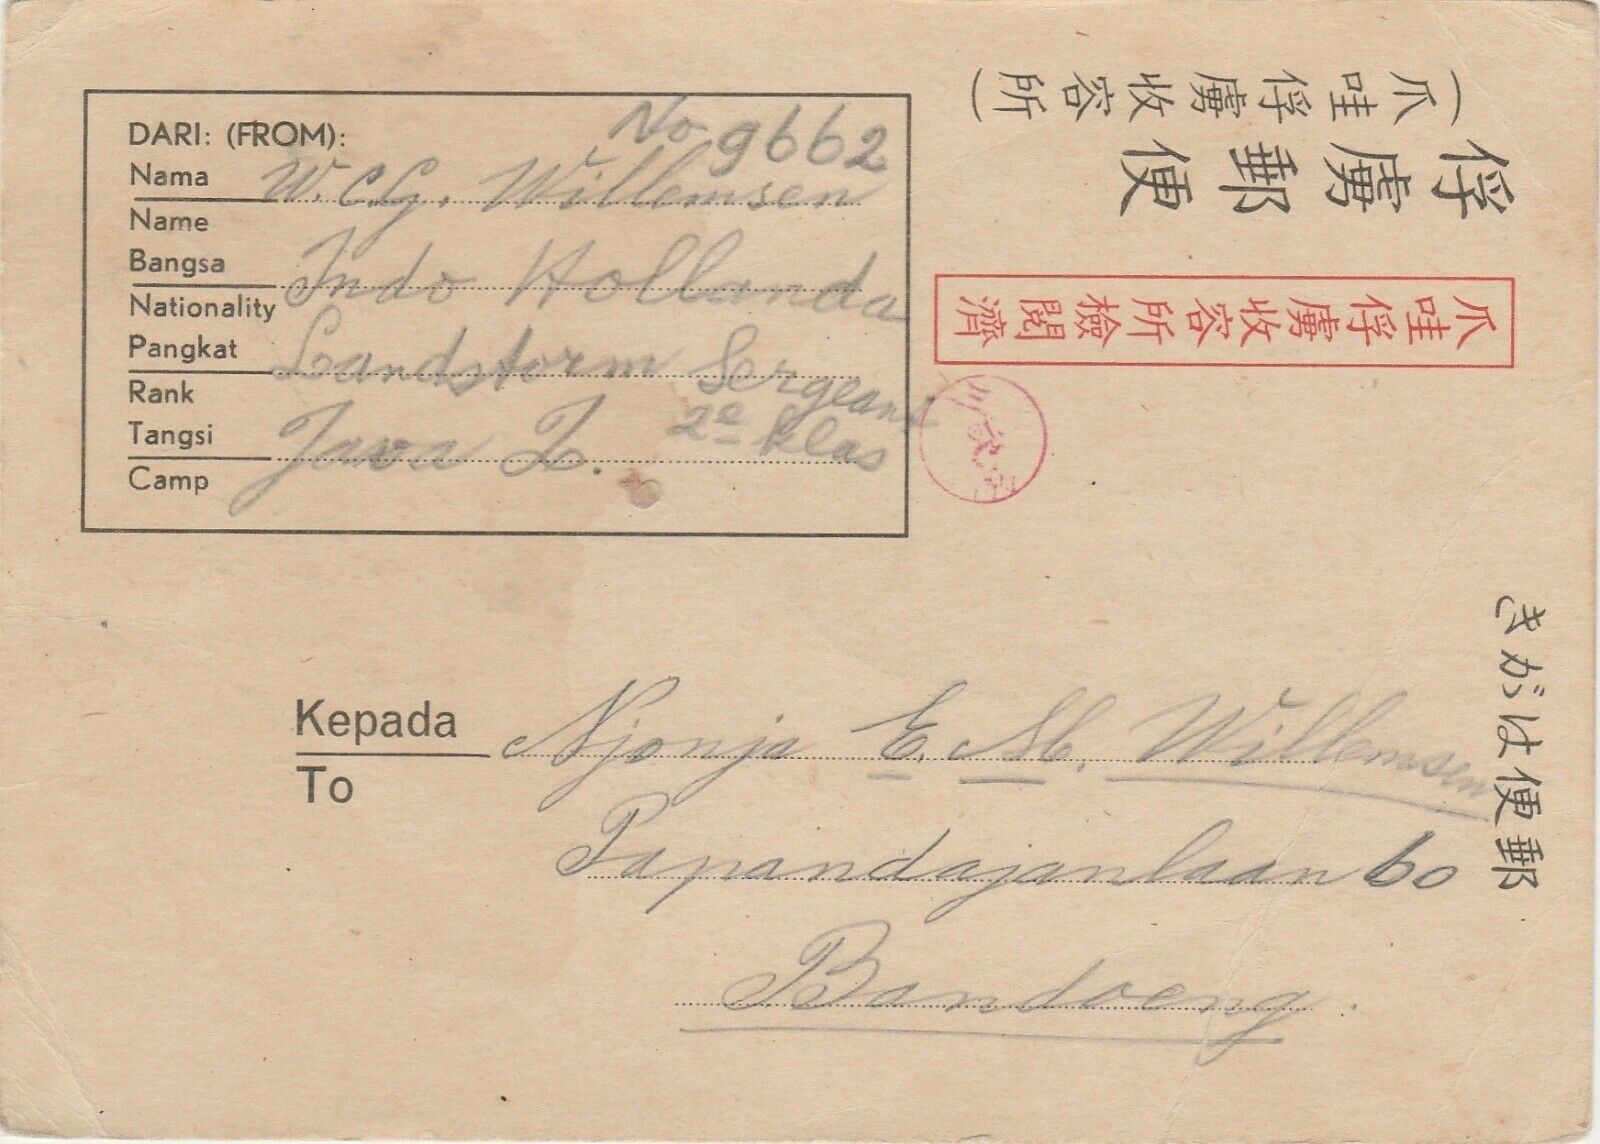 DARI: (FROM): No 9662
Nama W.C.G. Willemsen
Name
Bangsa Indo Hollanda
Nationality
Pangkat Landstorm Sergeant
Rank 2e klas
Tangsi Java I.
Camp
(爪哇俘虜收容所)
俘虜郵便
爪哇俘虜收容所檢閱濟
郵便はがき
Kepada Njonja E. M. Willemsen
To
Papandajanlaan 60
Bandoeng.